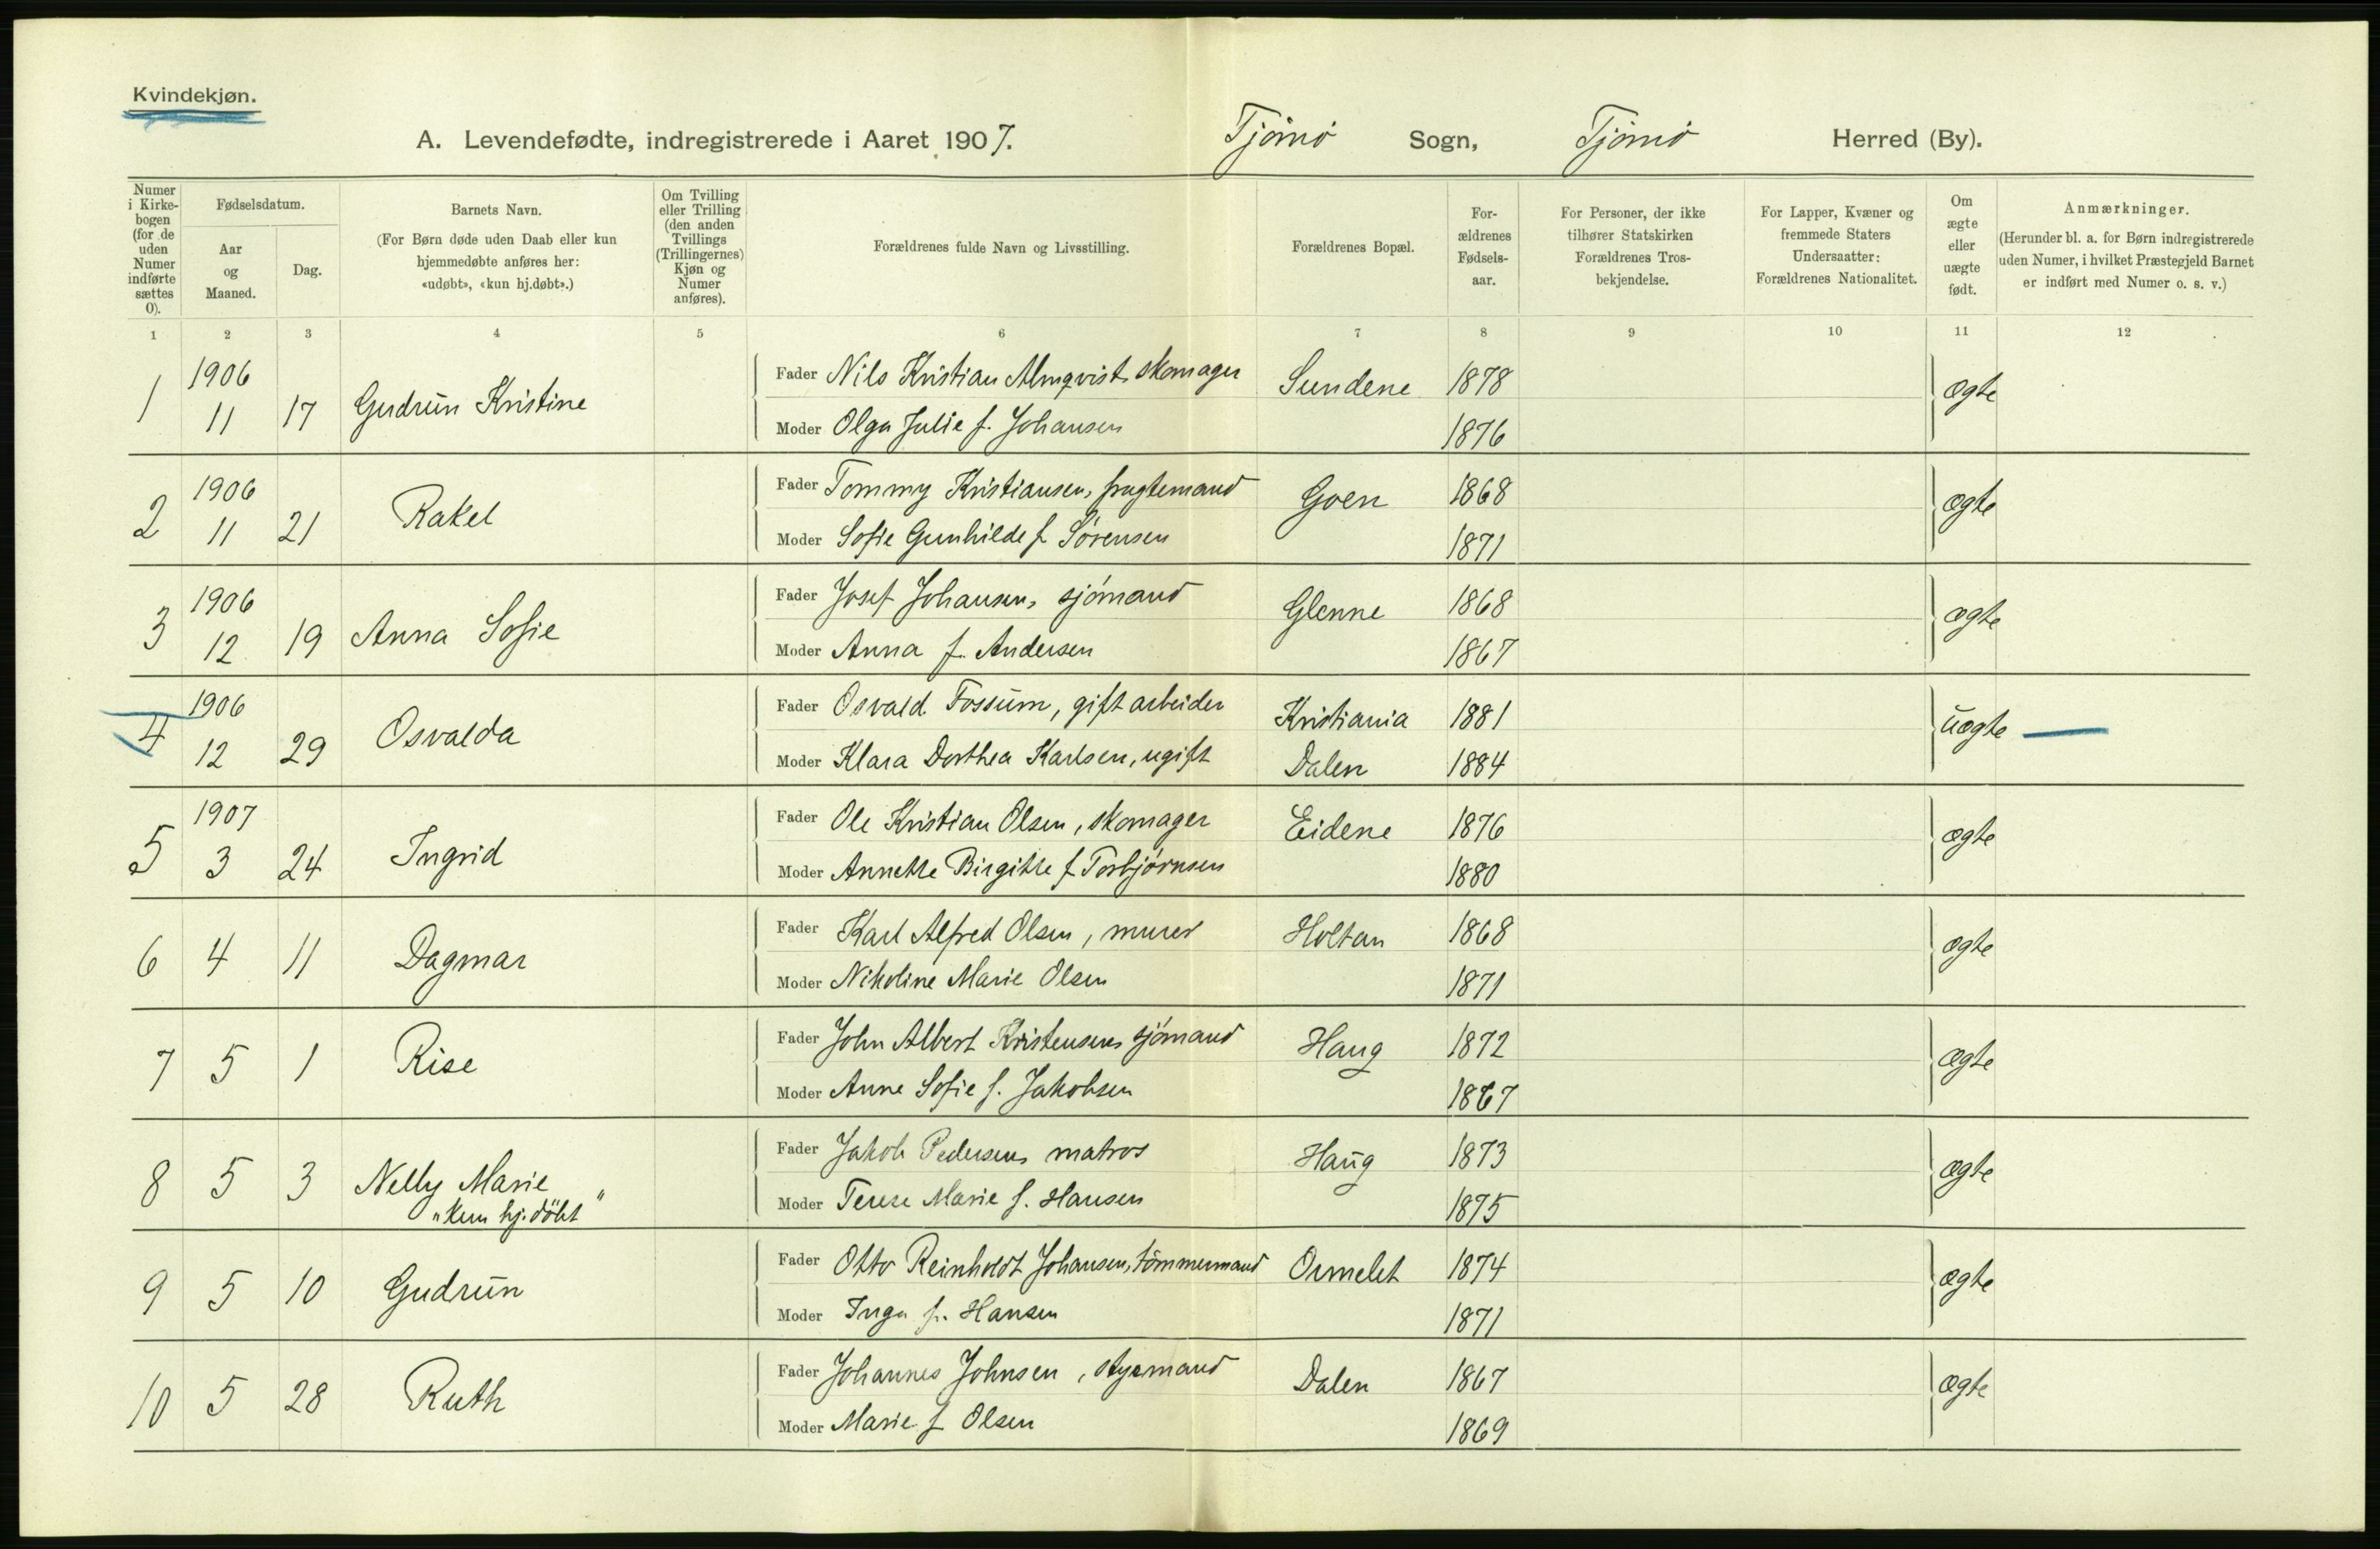 Kvindekjøn.
A. Levendefødte, indregistrerede i Aaret 1907. Tjömö Sogn, Tjömö Herred (By).
Numer i Kirkebogen (for de uden Numer indførte sættes 0).
Fødselsdatum.
Aar og Maaned.
Dag.
Barnets Navn.
(For Børn døde uden Daab eller kun
hjemmedøbte anføres her:
«udøbt», «kun hj.døbt».)
Om Tvilling
eller Trilling
(den anden
Tvillings
(Trillingernes)
Kjøn og
Numer
anføres).
Forældrenes fulde Navn og Livsstilling.
Forældrenes Bopæl.
For-
ældrenes
Fødsels-
aar.
For Personer, der ikke
tilhører Statskirken
Forældrenes Tros-
bekjendelse.
For Lapper, Kvæner og
fremmede Staters
Undersaatter:
Forældrenes Nationalitet.
Om
ægte
eller
uægte
født.
Anmærkninger.
(Herunder bl. a. for Børn indregistrerede
uden Numer, i hvilket Præstegjeld Barnet
er indført med Numer o. s. v.)
1 2 3 4 5 6 7 8 9 10 11 12
1 1906 11 17 Gudrun Kristine Fader Nils Kristian Almqvist, skomager Sundene 1878 ægte
Moder Olga Julie f. Johansen 1876
2 1906 11 21 Rakel Fader Tommy Kristiansen, fragtemand Goen 1868 ægte
Moder Sofie Gunhilde f Sörensen 1871
3 1906 12 19 Anna Sofie Fader Josef Johansen, sjömand Glenne 1868 ægte
Moder Anna f. Andersen 1867
4 1906 12 29 Osvalda Fader Osvald Fossum, gift arbeider Kristiania 1881 uægte
Moder Klara Dorthea Karlsen, ugift Dalen 1884
5 1907 3 24 Ingrid Fader Ole Kristian Olsen, skomager Eidene 1876 ægte
Moder Annette Birgitte f Torbjörnsen 1880
6 4 11 Dagmar Fader Karl Alfred Olsen, murer Holtan 1868 ægte
Moder Nikoline Marie Olsen 1871
7 5 1 Rise Fader John Albert Kristensen, sjömand Haug 1872 ægte
Moder Anne Sofie f. Jakobsen 1867
8 5 3 Nelly Marie Fader Jakob Pedersen, matros Haug 1873 ægte
"kun hj. döbt" Moder Terese Marie f. Hansen 1875
9 5 10 Gudrun Fader Otto Reinholdt Johansen, tömmermand Ormelet 1874 ægte
Moder Inga f. Hansen 1871
10 5 28 Ruth Fader Johannes Johnsen, styrmand Dalen 1867 ægte
Moder Marie f Olsen 1869